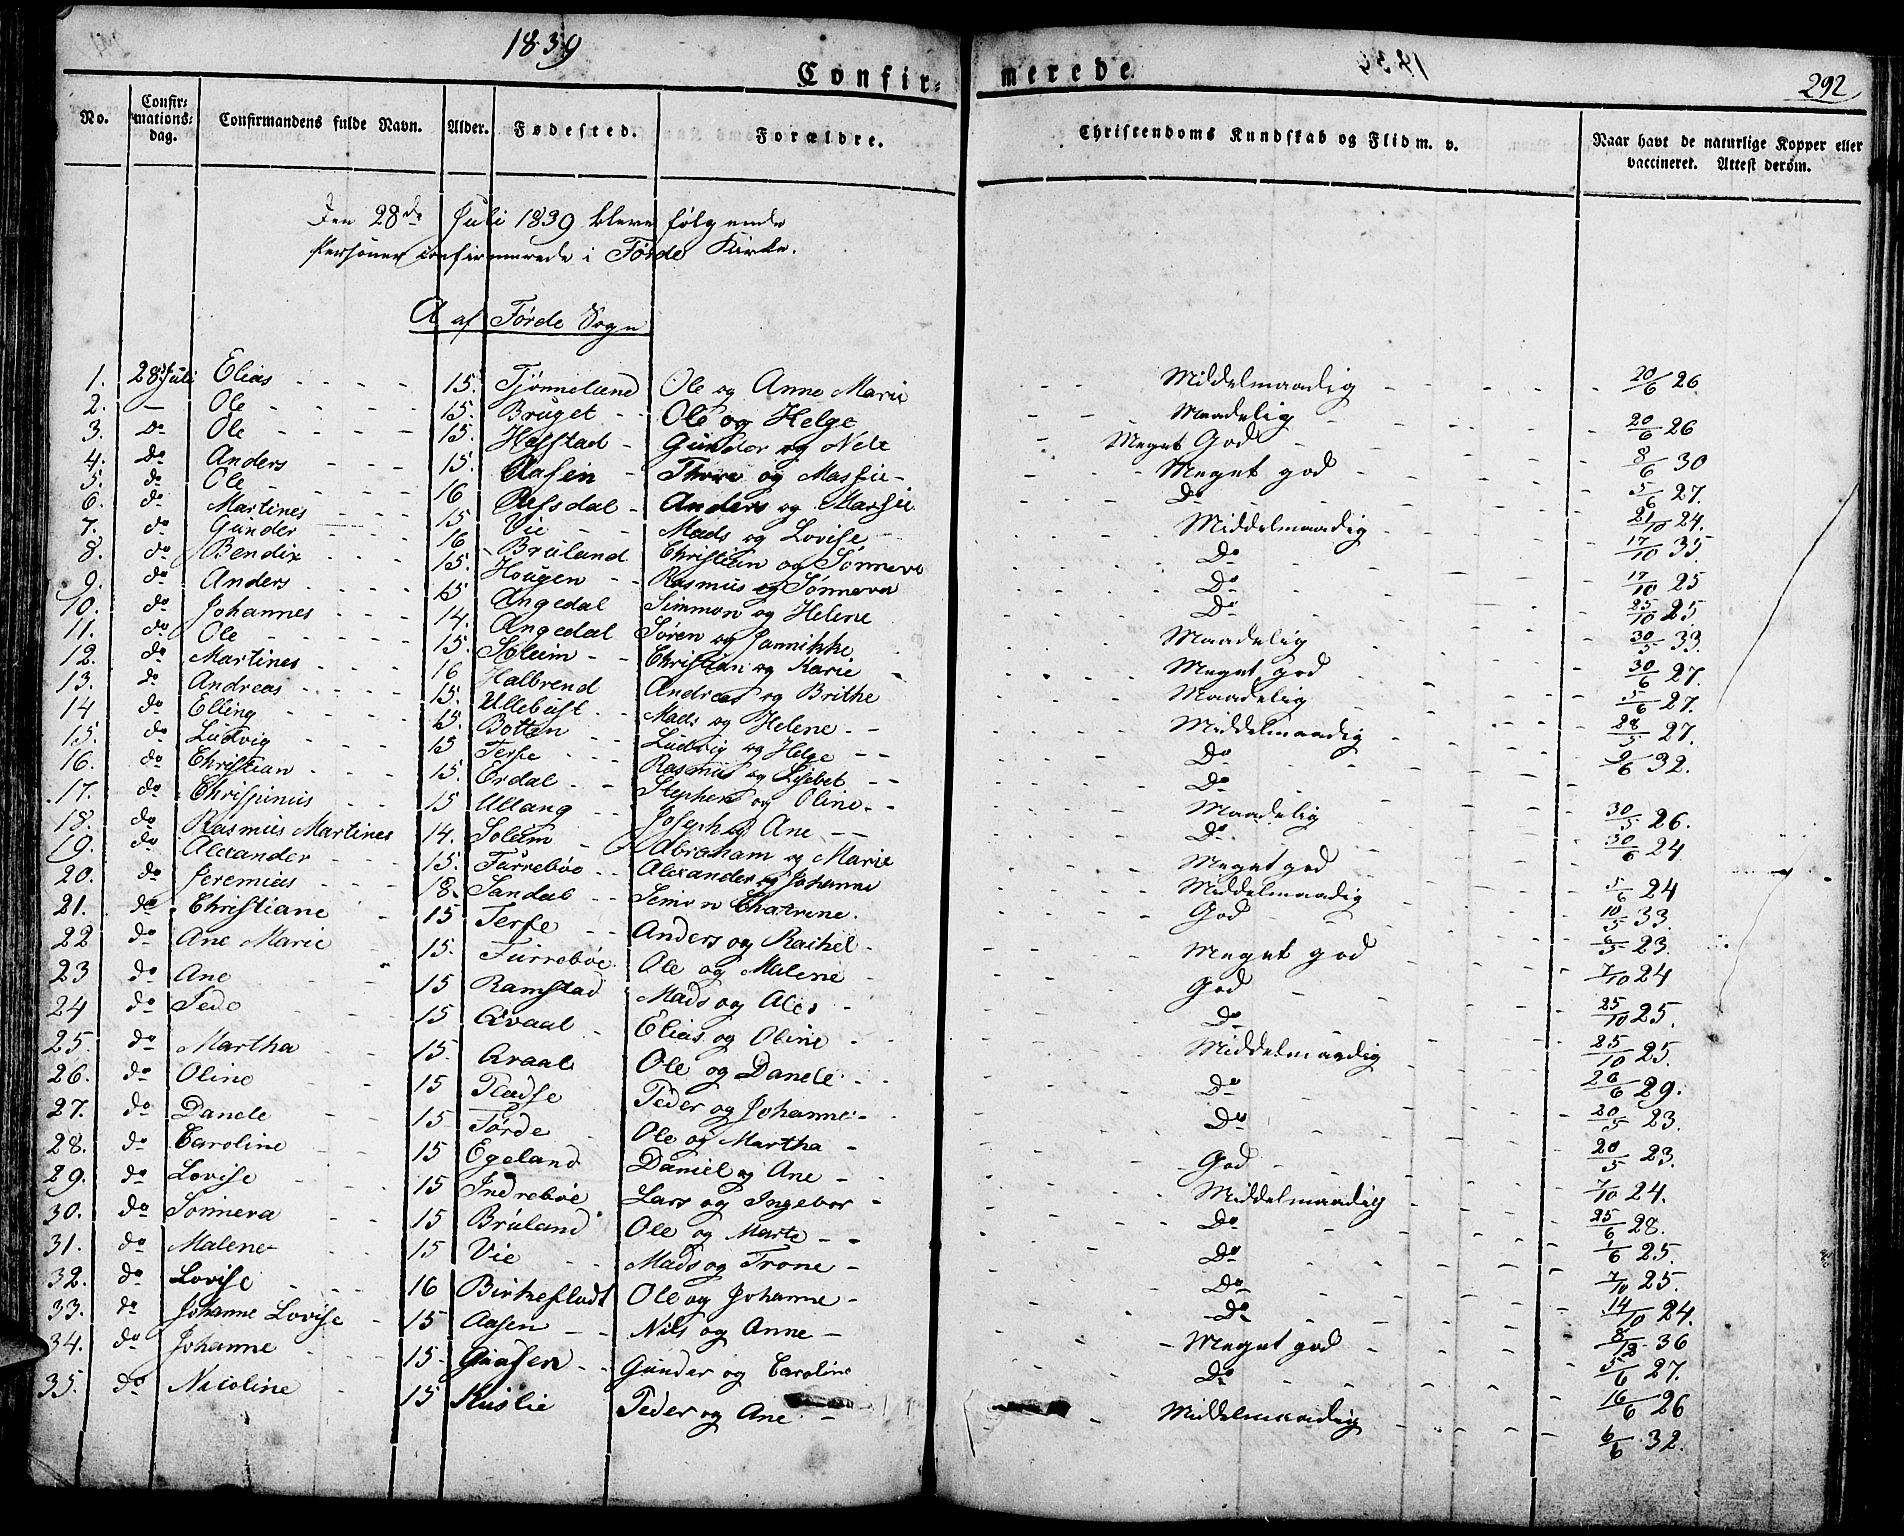 1839
Confirmerede
292
No. Confirmations-dag. Confirmandens fulde Navn. Alder. Fødested. Forældre. Christendoms Kundskab og Flid m. v. Naar havt de naturlige Kopper eller vaccineret. Attest derom.
Den 28de Juli 1839 bleve følgende
Personer confirmerede i Førde Kirke.
A af Førde Sogn
1. 28 Juli Elias 15. Tjønneland Ole og Anne Marie Middelmaadig 20/6 26
2. — Ole 15. Bruget Ole og Helge Maadelig 20/6 26
3. Do Ole 15. Hafstad Gunder og Nele Meget God 8/6 30
4. Do Anders 15. Aasen Thore og Massie Meget god 5/6 27.
5. do Ole 16 Refsdal Anders og Marsie Do 21/10 24.
6. do Martines 15 Vie Mads og Lovise Middelmaadig 17/10 35
7. do Gunder 16 Bruland Christian og Sønneva Do 17/10 25
8. do Bendix 15. Hougen Rasmus og Sønneva Do 25/10 25.
9. do Anders 15 Angedal Simmon og Helene Do 30/5 33.
10. do Johannes 14. Angedal Søren og Jannikke Maadelig 30/6 27.
11. do Ole 15. Soleim Christian og Karie Meget god 5/6 27.
12. do Martines 16 Halbrend Andreas og Brithe Maadelig 28/5 27.
13. do Andreas 15. Ullebust Mads og Helene Middelmaadig 9/6 32.
14 do Elling 15. Botten Ludvig og Helge Do
15. do Ludvig 15 Ferse Rasmus og Lisebet Do 30/5 26.
16. do Christian 15. Erdal Stephen og Oline Maadelig 30/6 24
17. do Chrispinus 15 Ullang Joseph og Ane Do
18. do Rasmus Martines 14. Soleim Abraham og Marie Meget god 5/6 24
19. do Alexander 15. Furrebøe Alexander og Johanne Middelmaadig 10/5 33.
20. do Jeremias 18. Sandal Simon Chatrine. God 6/5 23.
21. do Christiane 15 Ferse Anders og Rachel Meget god 7/10 24
22 do Ane Marie 15. Furrebøe Ole og Malene God 25/10 25.
23 do Ane 15 Ramstad Mads og Ales Do 25/10 25.
24 do 15 Qvaal Elias og Oline Middelmaadig 26/6 29.
25. do Martha 15. Qvaal Ole og Danele Do 20/5 23.
26. do Oline 15 Peder og Johanne Do 20/5 23.
27. do Danele 15 Førde Ole og Martha God 7/10 24.
28. do Caroline 15 Egeland Daniel og Ane Middelmaadig 25/6 28.
29. do Lovise 15 Indrebøe Lars og Ingebor Do 1/6 25.
30. do Sønneva 15 Bruland Ole og Marte Do 7/10 25.
31. do Malene 15 Vie Mads og Trone Do 14/10 24.
32. do Lovise 16 Birkeflodt Ole og Johanne Do 8/12 36
33. do Johanne Lovise 15 Aasen Nils og Anne Meget god 5/6 27.
34. do Johanne 15. Gaasen Gunder og Caroline Do 16/6 26
35. do Nicoline 15 Kuslie Peder og Ane Middelmaadig 6/6 32.